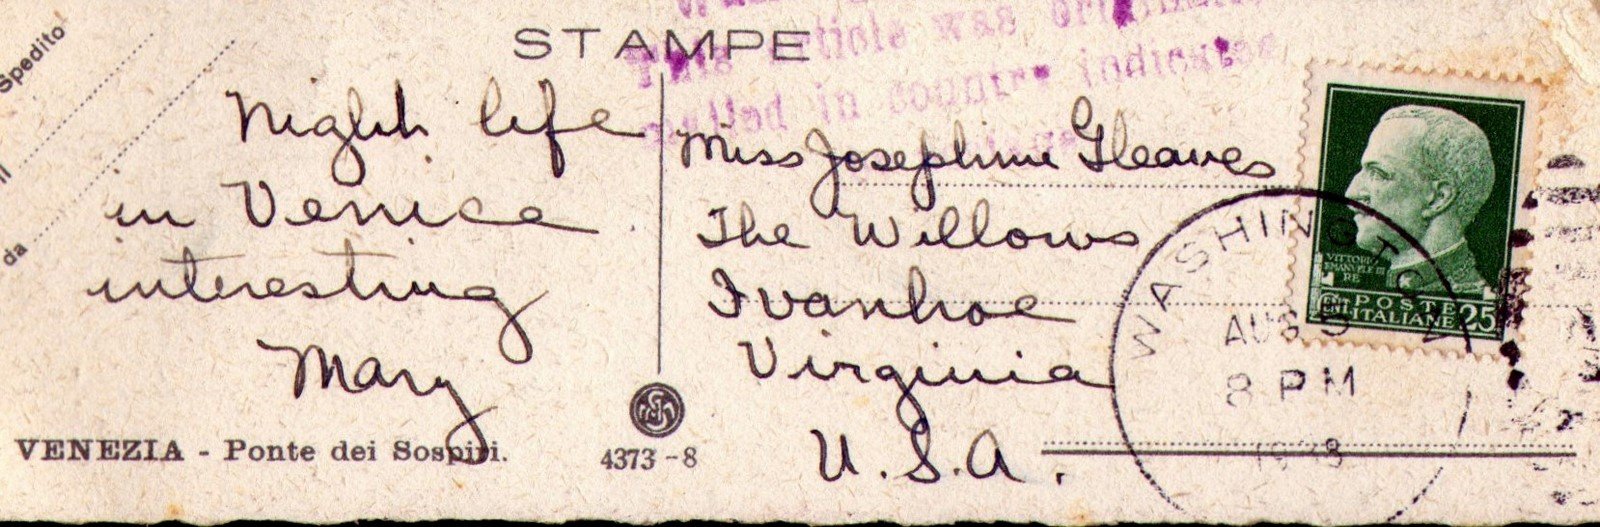 Spedito
il
da
STAMPE
This article was
mailed in country indicated
Night life
in Venice
interesting
Mary
VENEZIA - Ponte dei Sospiri.
4373-8
Miss Josephine Gleaves
The Willows
Ivanhoe
Virginia
U.S.A.
VITTORIO
EMANUELE III
RE
POSTE
ITALIANE
25
WASHINGTON
AUG
8 PM